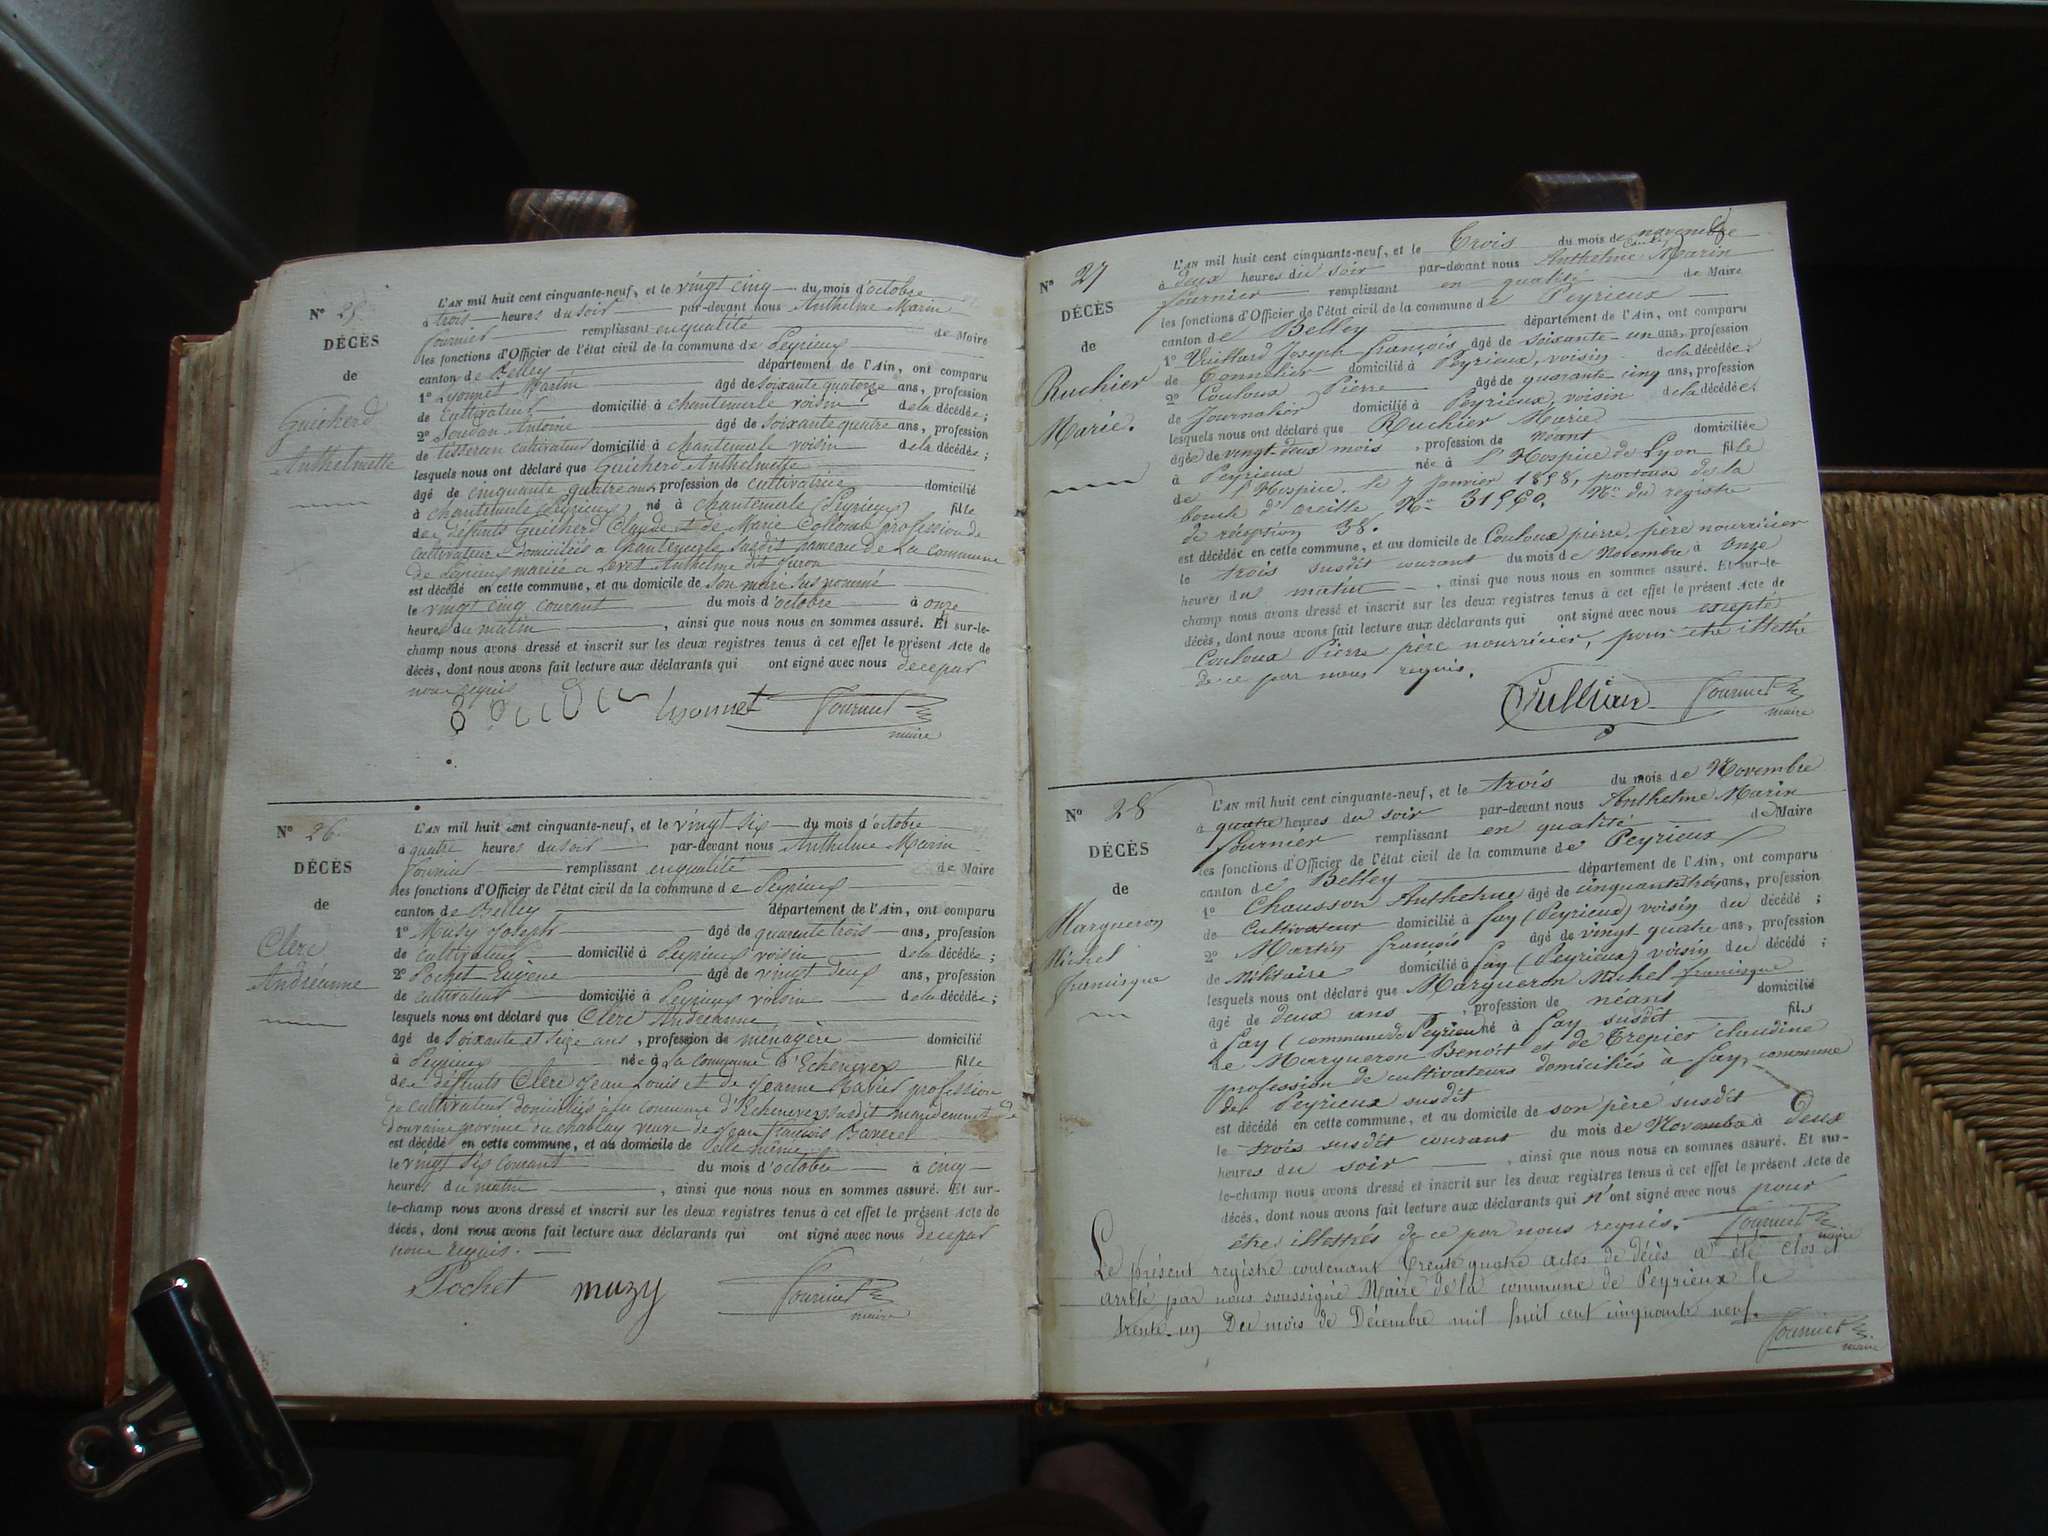 N° 25
DÉCÈS
de
Guicherd
Anthelmette
L'AN mil huit cent cinquante-neuf, et le vingt cinq du mois d'octobre
à trois heures du soir par-devant nous Anthelme Marin
fournier remplissant en qualité de Maire
les fonctions d'Officier de l'état civil de la commune de Peyrieux
canton de Belley département de l'Ain, ont comparu
1° Lyonnet Martin âgé de soixante quatorze ans, profession
de cultivateur domicilié à chantemerle voisin de la décédée;
2° Soudan Antoine âgé de soixante quatre ans, profession
de tisseran cultivateur domicilié à chantemerle voisin de la décédée;
lesquels nous ont déclaré que Guicherd Anthelmette
âgé de cinquante quatre ans profession de cultivatrice domicilié
à chantemerle (Peyrieux) né à chantemerle (Peyrieux) fille
de défunts Guicherd Claude et de Marie Collomb profession de
cultivateurs domiciliés a chantemerle susdit hameau de la commune
de Peyrieux mariée a Levet Anthelme dit
est décédé en cette commune, et au domicile de son mari susnommé
le vingt cinq courant du mois d'octobre à onze
heures du matin, ainsi que nous nous en sommes assuré. Et sur-le-
champ nous avons dressé et inscrit sur les deux registres tenus à cet effet le présent Acte de
décès, dont nous avons fait lecture aux déclarants qui ont signé avec nous de ce par
nous requis
Liyonnet Fournier
maire
N° 26
DÉCÈS
de
Clerc
Andréanne
L'AN mil huit cent cinquante-neuf, et le vingt six du mois d'octobre
à quatre heures du soir par-devant nous Anthelme Marin
Fournier remplissant en qualité de Maire
les fonctions d'Officier de l'état civil de la commune de Peyrieux
canton de Belley département de l'Ain, ont comparu
1° Muzy Joseph âgé de quarente trois ans, profession
de cultivateur domicilié à Peyrieux voisin de la décédée;
2° Pochet Eugène âgé de vingt deux ans, profession
de cultivateur domicilié à Peyrieux voisin de la décédée;
lesquels nous ont déclaré que Clerc Andréanne
âgé de soixante et seize ans, profession de ménagère domicilié
à Peyrieux née à la commune d'Echenevex fille
de défunts Clerc Jean Louis et de Jeanne profession
de cultivateur, domiciliés à la commune d'Echenevex susdit mandement de
douvaine province du chablay veuve de Jean francois Baveret
est décédé en cette commune, et au domicile de elle même
le vingt six courant du mois d'octobre à cinq
heures du matin, ainsi que nous nous en sommes assuré. Et sur-
le-champ nous avons dressé et inscrit sur les deux registres tenus à cet effet le présent Acte de
décès, dont nous avons fait lecture aux déclarants qui ont signé avec nous de ce par
nous requis.
Pochet muzy Fournier
maire
N° 27
DÉCÈS
de
Ruchier
Marie.
L'AN mil huit cent cinquante-neuf, et le Trois du mois de novembre
à deux heures du soir par-devant nous Anthelme Marin
fournier remplissant en qualité de Maire
les fonctions d'Officier de l'état civil de la commune de Peyrieux
canton de Belley département de l'Ain, ont comparu
1° Vuillard Joseph françois âgé de soixante-un ans, profession
de Tonnelier domicilié à Peyrieux, voisin de la décédée;
2° Couloux Pierre âgé de quarante cinq ans, profession
de Journalier domicilié à Peyrieux, voisin de la décédée;
lesquels nous ont déclaré que Ruchier Marie
âgée de vingt-deux mois, profession de néant domiciliée
à Peyrieux née à l'Hospice de Lyon fille
de l'Hospice, le 7 janvier 1858, porteuse de la
boucle d'oreille, N° 31560. N° du registre
de réception 38.
est décédée en cette commune, et au domicile de Couloux pierre, père nourricier
le trois susdit courant du mois de Novembre à onze
heures du matin, ainsi que nous nous en sommes assuré. Et sur-le-
champ nous avons dressé et inscrit sur les deux registres tenus à cet effet le présent Acte de
décès, dont nous avons fait lecture aux déclarants qui ont signé avec nous excepté
Couloux Pierre père nourricier, pour être illettré
de ce par nous requis.
Fournier
maire
N° 28
DÉCÈS
de
Margueron
Michel
francisque
L'AN mil huit cent cinquante-neuf, et le trois du mois de Novembre
à quatre heures du soir par-devant nous Anthelme Marin
fournier remplissant en qualité de Maire
les fonctions d'Officier de l'état civil de la commune de Peyrieux
canton de Belley département de l'Ain, ont comparu
1° Chausson Anthelme âgé de cinquante trois ans, profession
de cultivateur domicilié à fay (Peyrieux) voisin du décédé;
2° Martin françois âgé de vingt quatre ans, profession
de Militaire domicilié à fay (Peyrieux) voisin du décédé;
lesquels nous ont déclaré que Margueron Michel francisque
âgé de deux ans, profession de néant domicilié
à fay (commune de Peyrieu né à fay susdit fils
de Margueron Benoît et de Trepier claudine
profession de cultivateurs domiciliés à fay, commune
de Peyrieux susdit
est décédé en cette commune, et au domicile de son père susdit
le trois susdit courant du mois de Novembre à Deux
heures du soir, ainsi que nous nous en sommes assuré. Et sur-
le-champ nous avons dressé et inscrit sur les deux registres tenus à cet effet le présent Acte de
décès, dont nous avons fait lecture aux déclarants qui n'ont signé avec nous pour
être illettrés de ce par nous requis. Fournier
maire
Le présent registre contenant trente quatre actes de décès a été clos et
arrêté par nous soussigné Maire de la commune de Peyrieux le
trente-un Du mois de Décembre mil huit cent cinquante neuf.
Fournier
maire